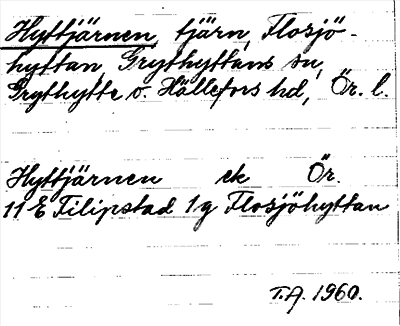 Hyttjärnen, tjärn, Flosjö-
hyttan, Grythyttans sn,
Grythytte o. Hällefors hd, Ör. l.
Hyttjärnen ek Ör.
11 E Filipstad 1g Flosjöhyttan
T.A. 1960.